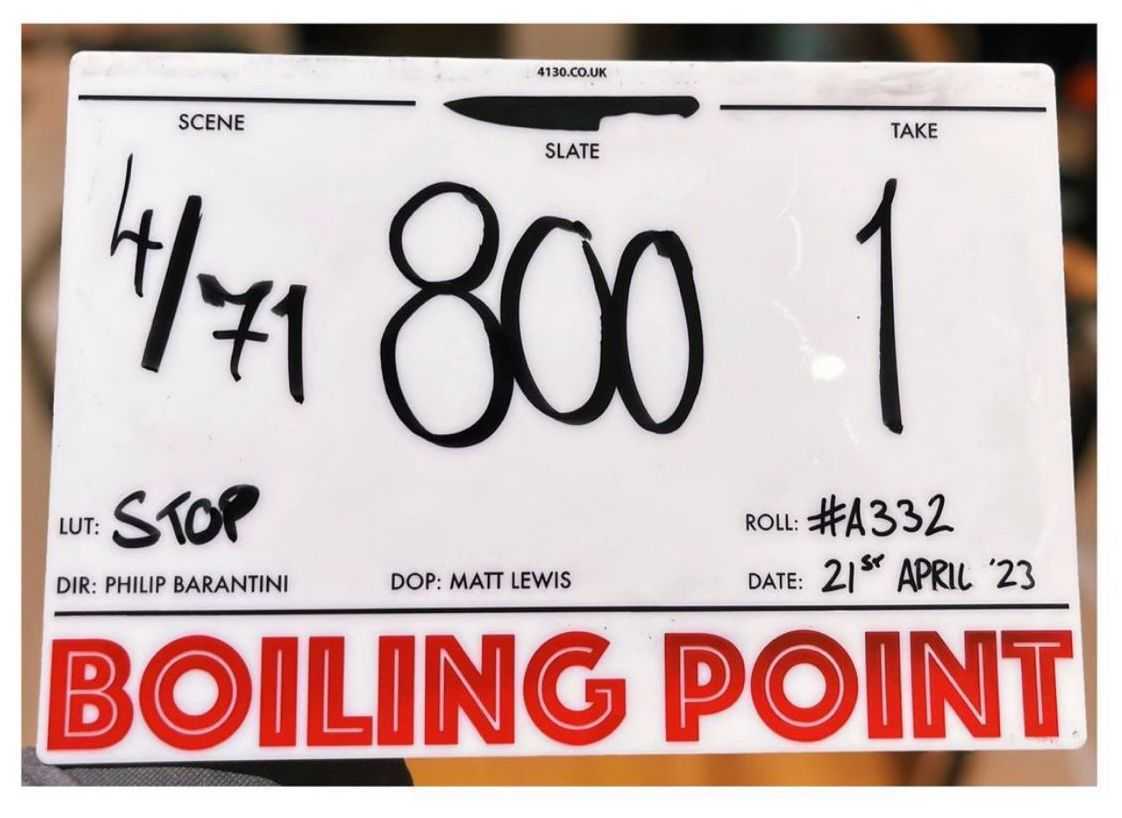 4130.CO.UK
SCENE SLATE TAKE
4/71 800 1
LUT: STOP ROLL: #A332
DIR: PHILIP BARANTINI DOP: MATT LEWIS DATE: 21st APRIL '23
BOILING POINT